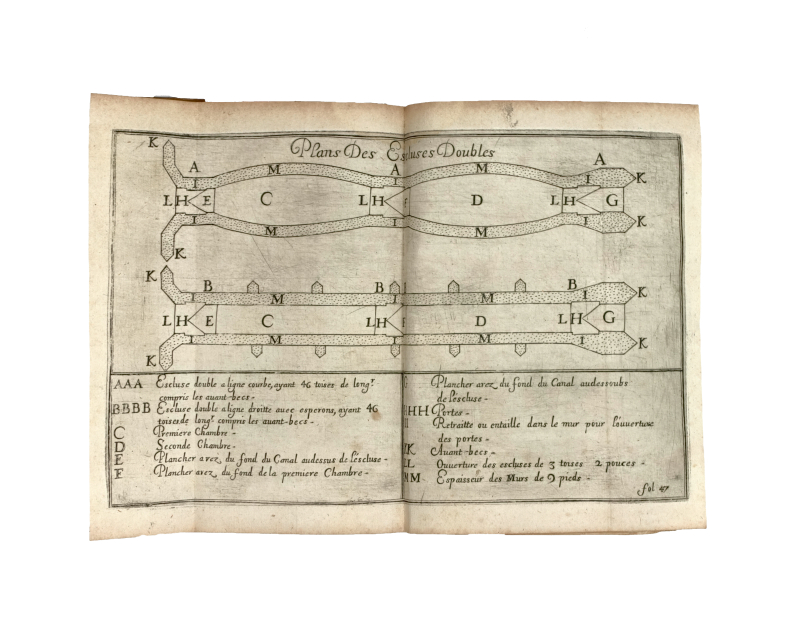 Plans Des Escluses Doubles
K
A M A M A
I I I K
L H E C L H F D L H G
I I I K
M M
K
K
B B B
I M I M I K
L H E C L H F D L H G
I M I M I K
K
AAA Escluse double a ligne courbe, ayant 46 toises de longr
compris les auant-becs -
BBBB Escluse double a ligne droitte auec esperons, ayant 46
toises de longr compris les auant-becs -
C Premiere Chambre -
D Seconde Chambre -
E Plancher arez du fond du Canal audessus de l'escluse -
F Plancher arez du fond de la premiere Chambre -
G Plancher arez du fond du Canal audessoubs
de l'escluse -
HHH Portes -
II Retraitte ou entaille dans le mur pour l'ouuerture
des portes -
KK Auant-becs -
LL Ouuerture des escluses de 3 toises 2 pouces -
MM Espaisseur des Murs de 9 pieds -
fol 47